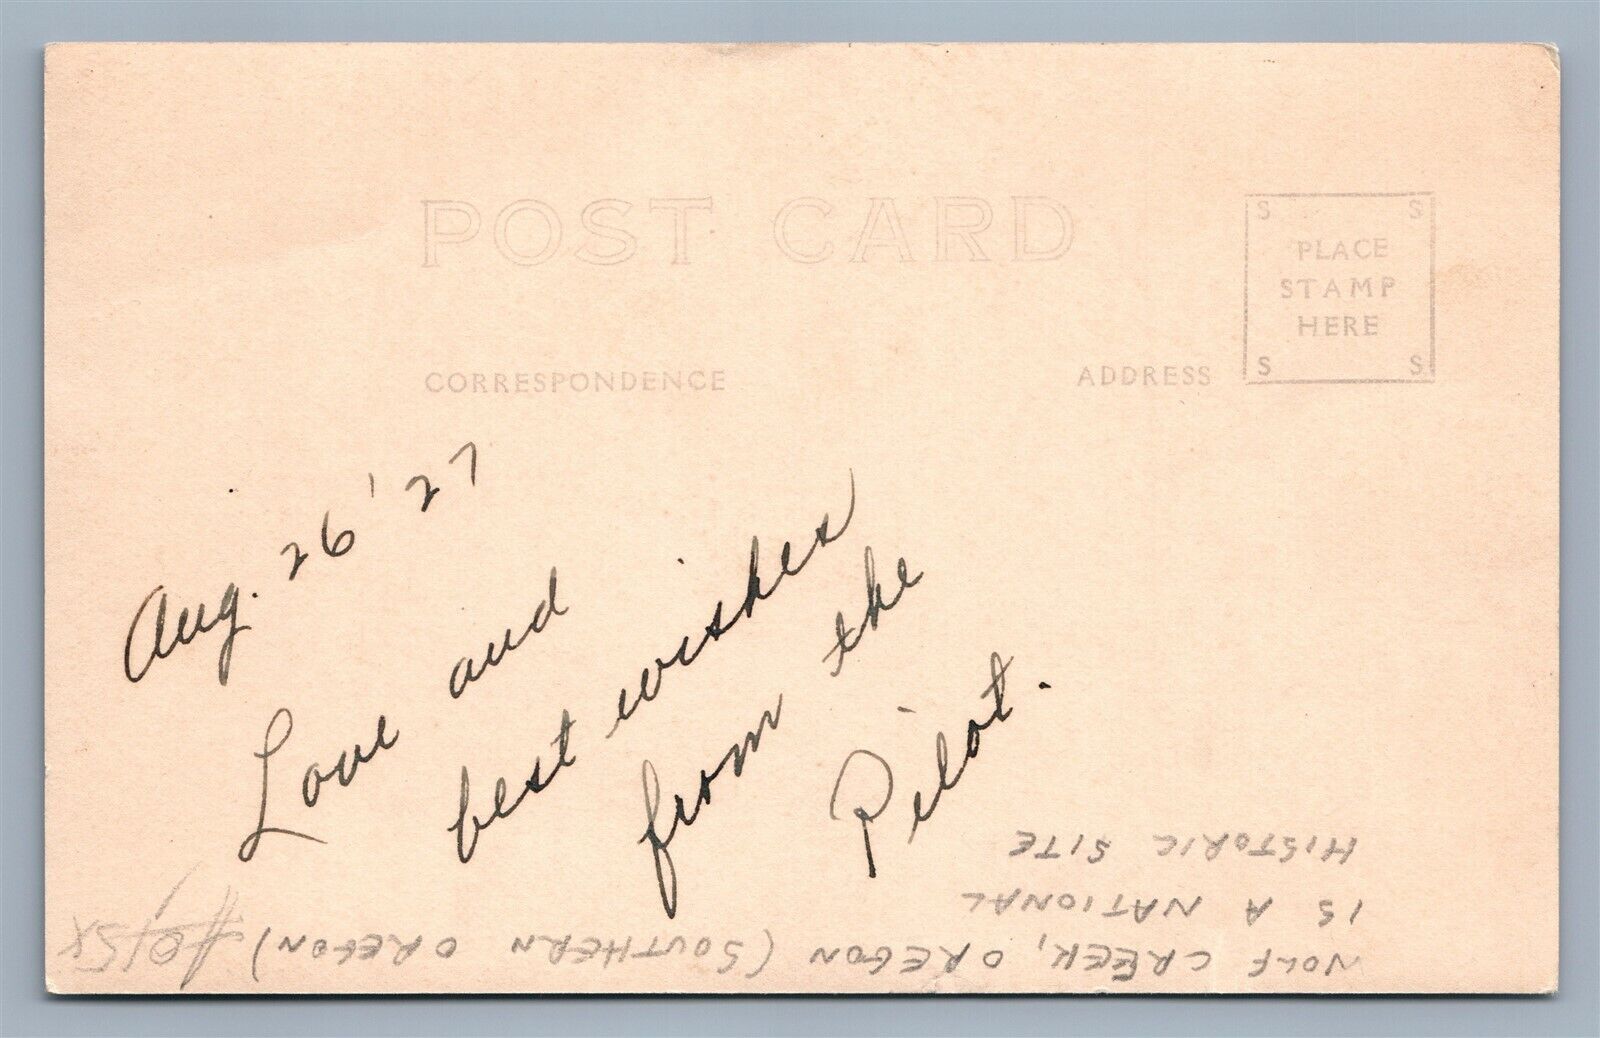 POST CARD
S S
PLACE
STAMP
HERE
S S
CORRESPONDENCE
ADDRESS
Aug. 26 '27
Love and
best wishes
from the
Pilot.
WOLF CREEK, OREGON (SOUTHERN OREGON)
IS A NATIONAL
HISTORIC SITE